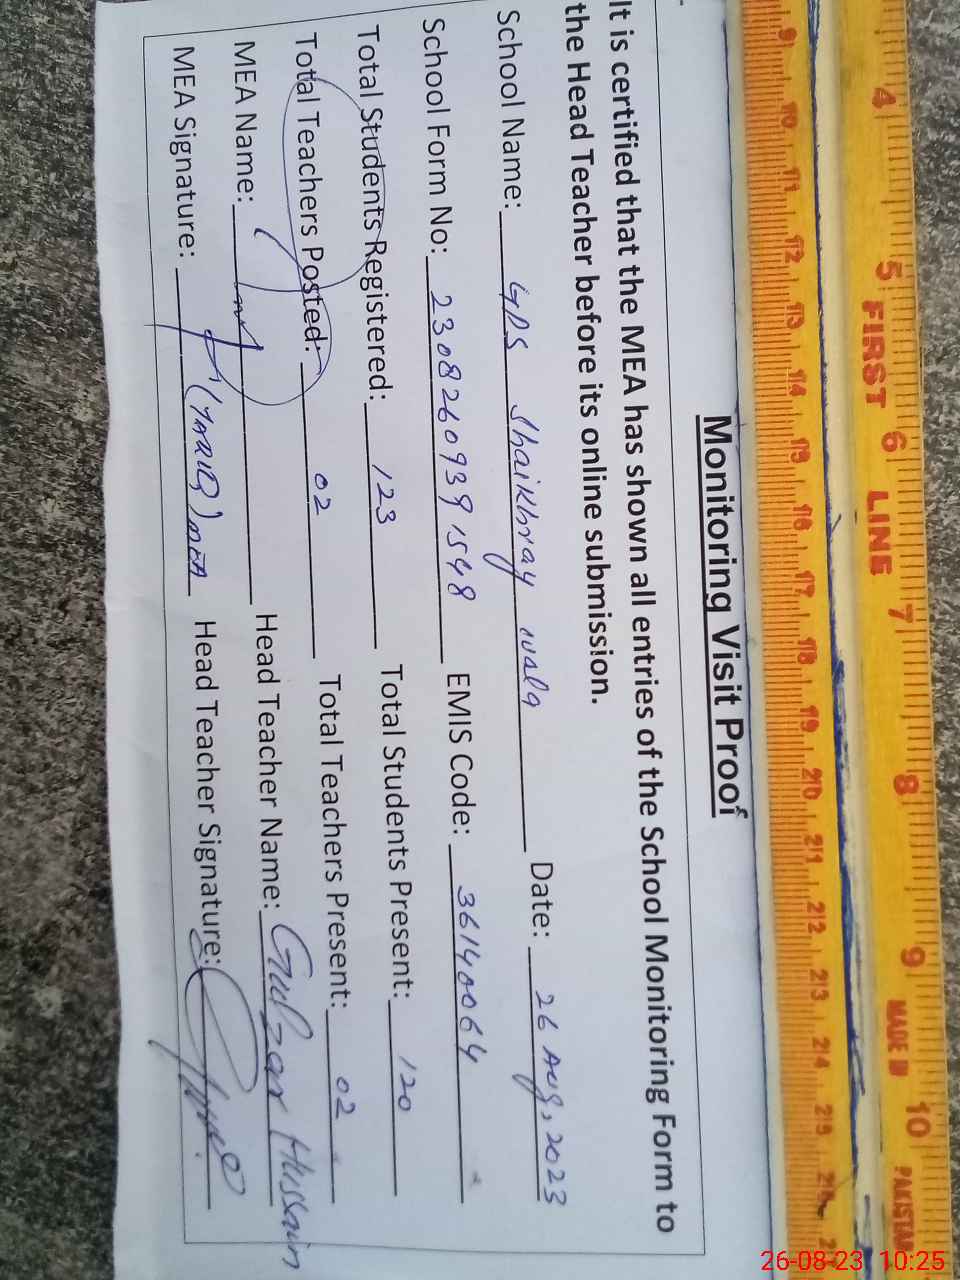 4 5 6 7 8 9 10
FIRST LINE MADE IN PAKISTAN
9 10 11 12 13 14 15 16 17 18 19 20 21 22 23 24 25
Monitoring Visit Proof
It is certified that the MEA has shown all entries of the School Monitoring Form to
the Head Teacher before its online submission.
School Name: GPS Shaikhray wala Date: 26 Aug, 2023
School Form No: 23082609391548 EMIS Code: 36140064
Total Students Registered: 123 Total Students Present: 120
Total Teachers Posted: 02 Total Teachers Present: 02
MEA Name: Head Teacher Name: Gulzar Hussain
MEA Signature: (TARIQ) MEA Head Teacher Signature:
26-08-23 10:25